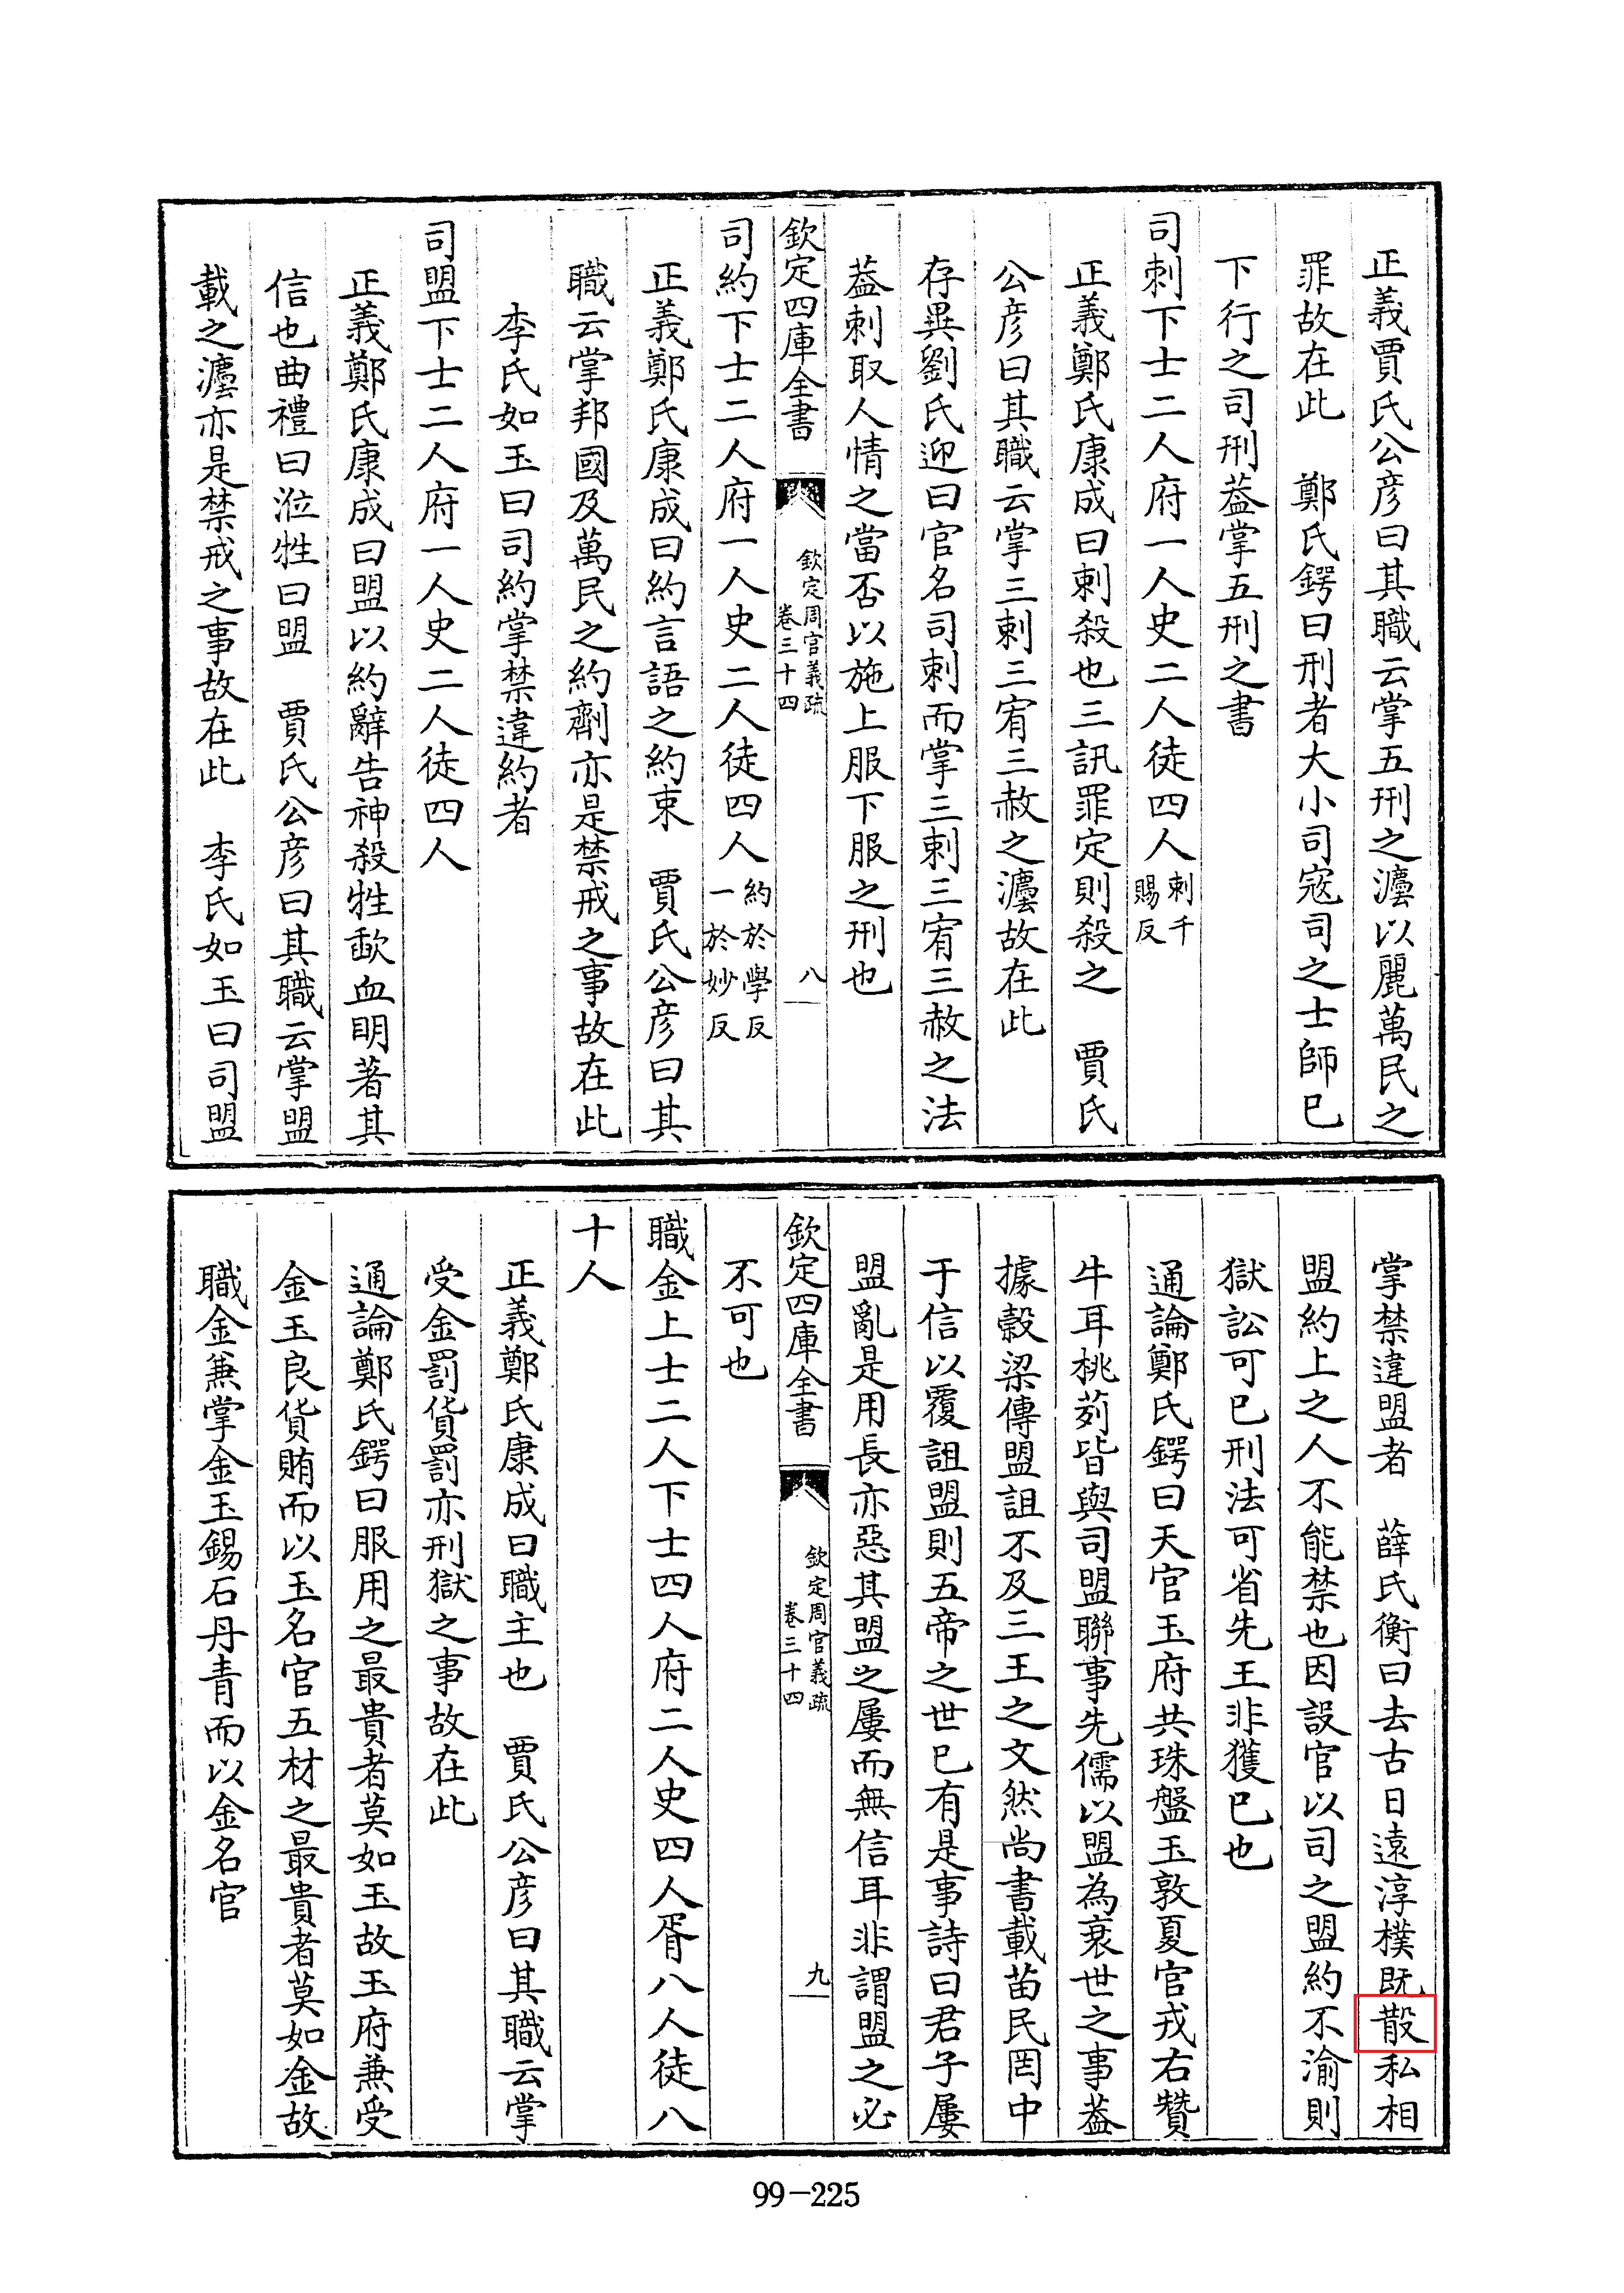 正義賈氏公彦曰其職云掌五刑之灋以麗萬民之
罪故在此　鄭氏鍔曰刑者大小司寇司之士師已
下行之司刑葢掌五刑之書
司刺下士二人府一人史二人徒四人刺千賜反
正義鄭氏康成曰刺殺也三訊罪定則殺之　賈氏
公彦曰其職云掌三刺三宥三赦之灋故在此
存異劉氏迎曰官名司刺而掌三刺三宥三赦之法
葢刺取人情之當否以施上服下服之刑也
欽定四庫全書　欽定周官義疏卷三十四　八
司約下士二人府一人史二人徒四人約於學反一於妙反
正義鄭氏康成曰約言語之約束　賈氏公彦曰其
職云掌邦國及萬民之約劑亦是禁戒之事故在此
李氏如玉曰司約掌禁違約者
司盟下士二人府一人史二人徒四人
正義鄭氏康成曰盟以約辭告神殺牲歃血明著其
信也曲禮曰涖牲曰盟　賈氏公彦曰其職云掌盟
載之灋亦是禁戒之事故在此　李氏如玉曰司盟
掌禁違盟者　薛氏衡曰去古日遠淳樸既散私相
盟約上之人不能禁也因設官以司之盟約不渝則
獄訟可已刑法可省先王非獲已也
通論鄭氏鍔曰天官玉府共珠盤玉敦夏官戎右贊
牛耳桃茢皆與司盟聯事先儒以盟為衰世之事葢
據榖梁傳盟詛不及三王之文然尚書載苗民罔中
于信以覆詛盟則五帝之世已有是事詩曰君子屢
盟亂是用長亦惡其盟之屢而無信耳非謂盟之必
欽定四庫全書　欽定周官義疏卷三十四　九
不可也
職金上士二人下士四人府二人史四人胥八人徒八
十人
正義鄭氏康成曰職主也　賈氏公彦曰其職云掌
受金罰貨罰亦刑獄之事故在此
通論鄭氏鍔曰服用之最貴者莫如玉故玉府兼受
金玉良貨賄而以玉名官五材之最貴者莫如金故
職金兼掌金玉錫石丹青而以金名官
99-225